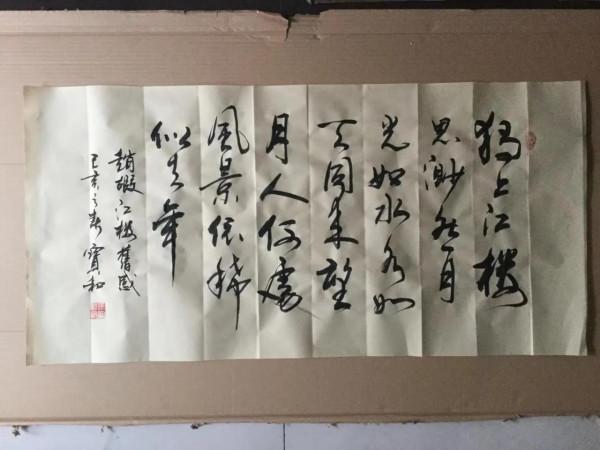 獨上江樓
思渺然月
光如水水如
天同来望
月人何處
風景依稀
似去年
趙嘏江樓舊感
己亥之春寶和